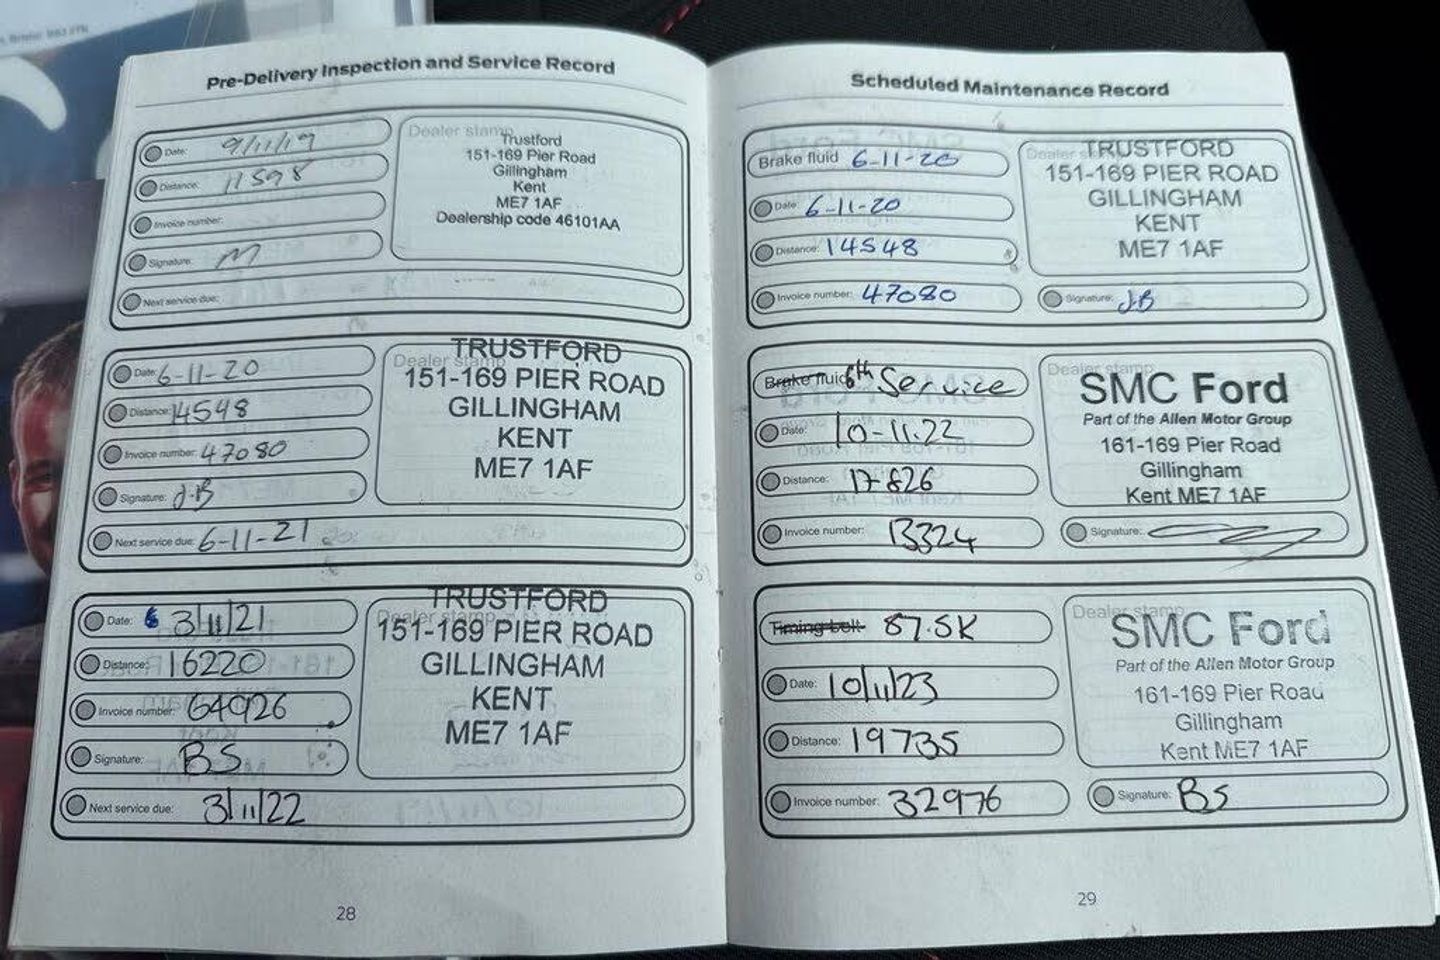 Pre-Delivery Inspection and Service Record
Date: 9/11/19
Distance: 11598
Invoice number:
Signature:
Next service due:
Dealer stamp
Trustford
151-169 Pier Road
Gillingham
Kent
ME7 1AF
Dealership code 46101AA
Date: 6-11-20
Distance: 14548
Invoice number: 47080
Signature: J.B
Next service due: 6-11-21
Dealer stamp
TRUSTFORD
151-169 PIER ROAD
GILLINGHAM
KENT
ME7 1AF
Date: 3/11/21
Distance: 16220
Invoice number: 64926
Signature: BS
Next service due: 3/11/22
Dealer stamp
TRUSTFORD
151-169 PIER ROAD
GILLINGHAM
KENT
ME7 1AF
28
Scheduled Maintenance Record
Brake fluid 6-11-20
Date: 6-11-20
Distance: 14548
Invoice number: 47080
Dealer stamp
TRUSTFORD
151-169 PIER ROAD
GILLINGHAM
KENT
ME7 1AF
Signature: JB
Brake fluid 6th Service
Date: 10-11-22
Distance: 17826
Invoice number: 13324
Dealer stamp
SMC Ford
Part of the Allen Motor Group
161-169 Pier Road
Gillingham
Kent ME7 1AF
Signature:
Timing belt 87.5K
Date: 10/11/23
Distance: 19735
Invoice number: 32976
Dealer stamp
SMC Ford
Part of the Allen Motor Group
161-169 Pier Road
Gillingham
Kent ME7 1AF
Signature: BS
29